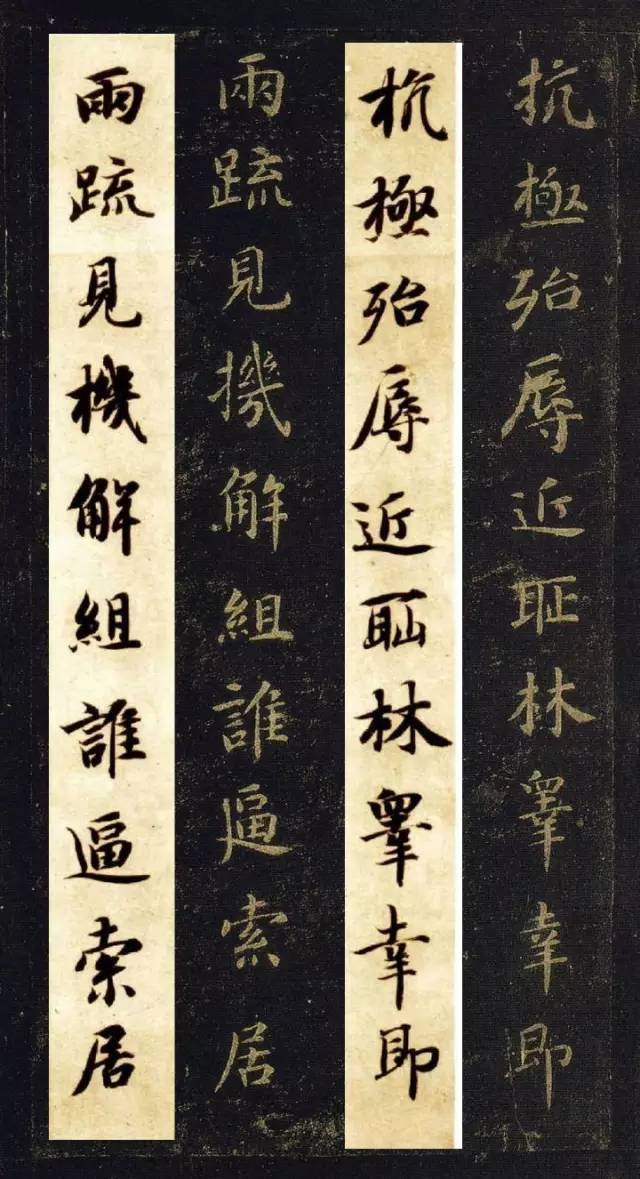 抗極殆辱近耻林睪幸即
杭極殆辱近耻林睪幸即
兩疏見機解組誰逼索居
兩疏見機解組誰逼索居